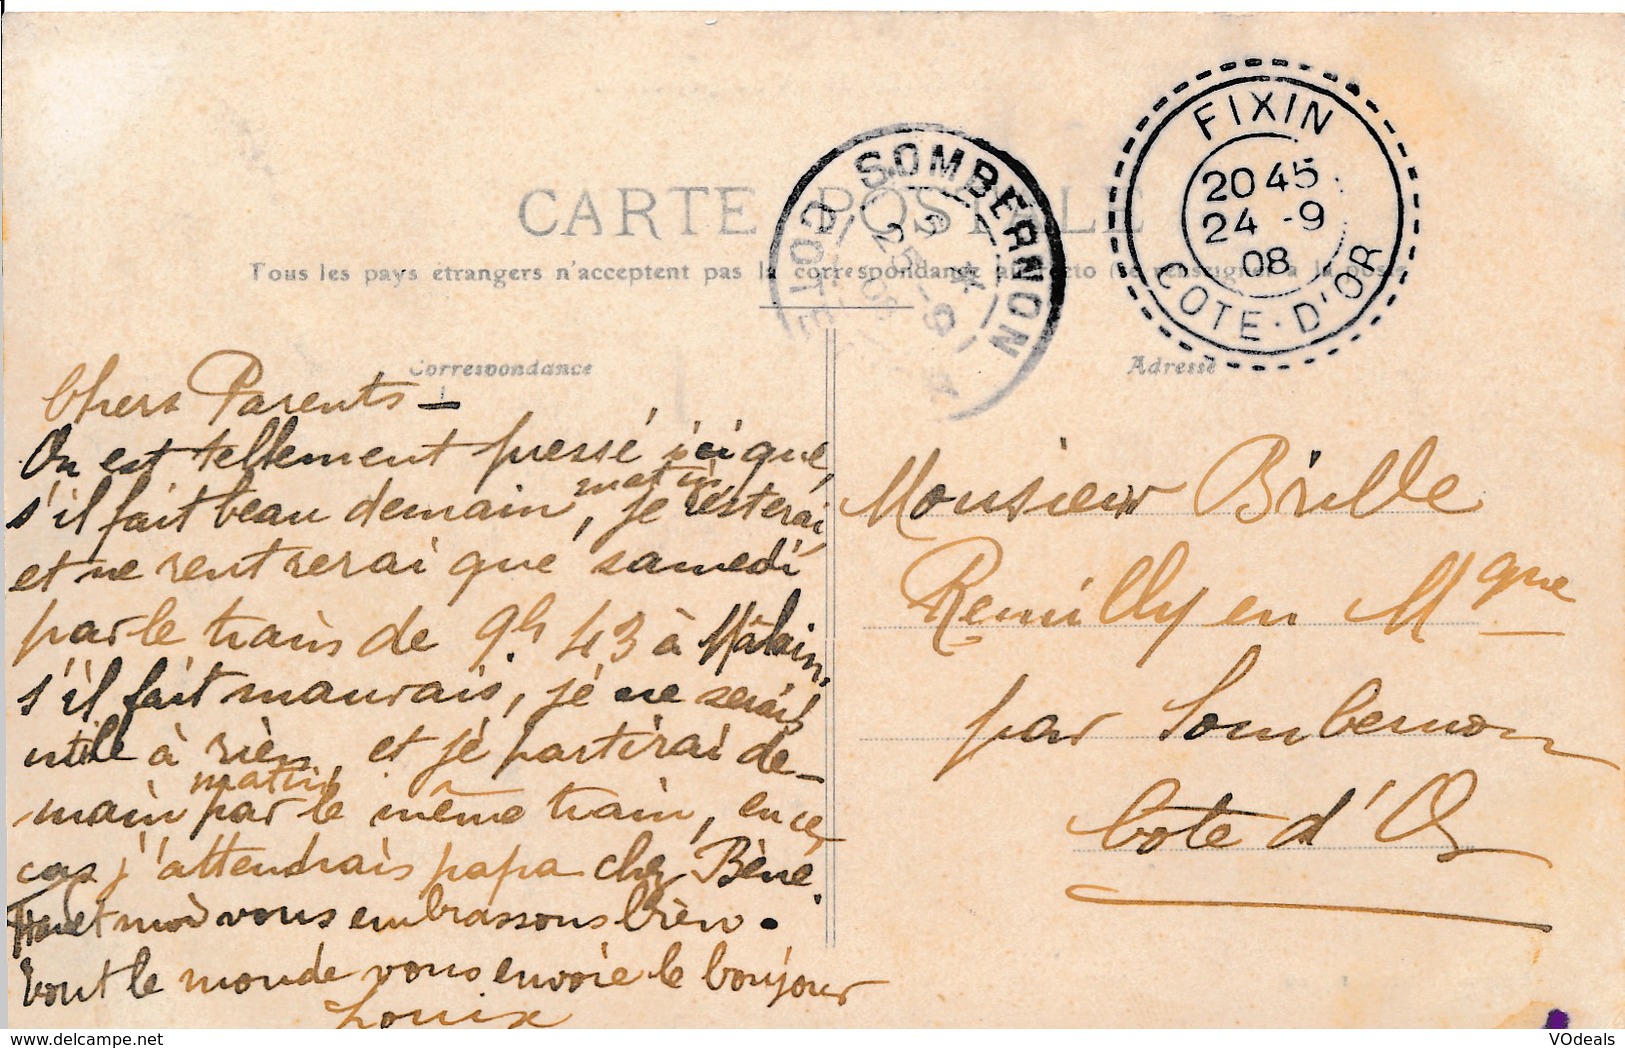 CARTE POSTALE
Tous les pays étrangers n'acceptent pas la correspondance au recto (se renseigner à la poste)
SOMBERNON
COTE
25 -9
08
FIXIN
20 45
24 -9
08
COTE · D'OR
Correspondance
Adresse
Chers Parents —
On est tellement pressé ici que,
s'il fait beau demain matin, je resterai
et ne rentrerai que samedi
par le train de 9h. 43 à Mâlain,
s'il fait mauvais, je ne serais
utile à rien, et je partirai de-
main matin par le même train, en ce
cas j'attendrais papa chez Bène.
et moi vous embrassons bien.
Tout le monde vous envoie le bonjour
Louis
Monsieur Brulle
Remilly en Mgne
par Sombernon
Cote d'Or
VOdeals